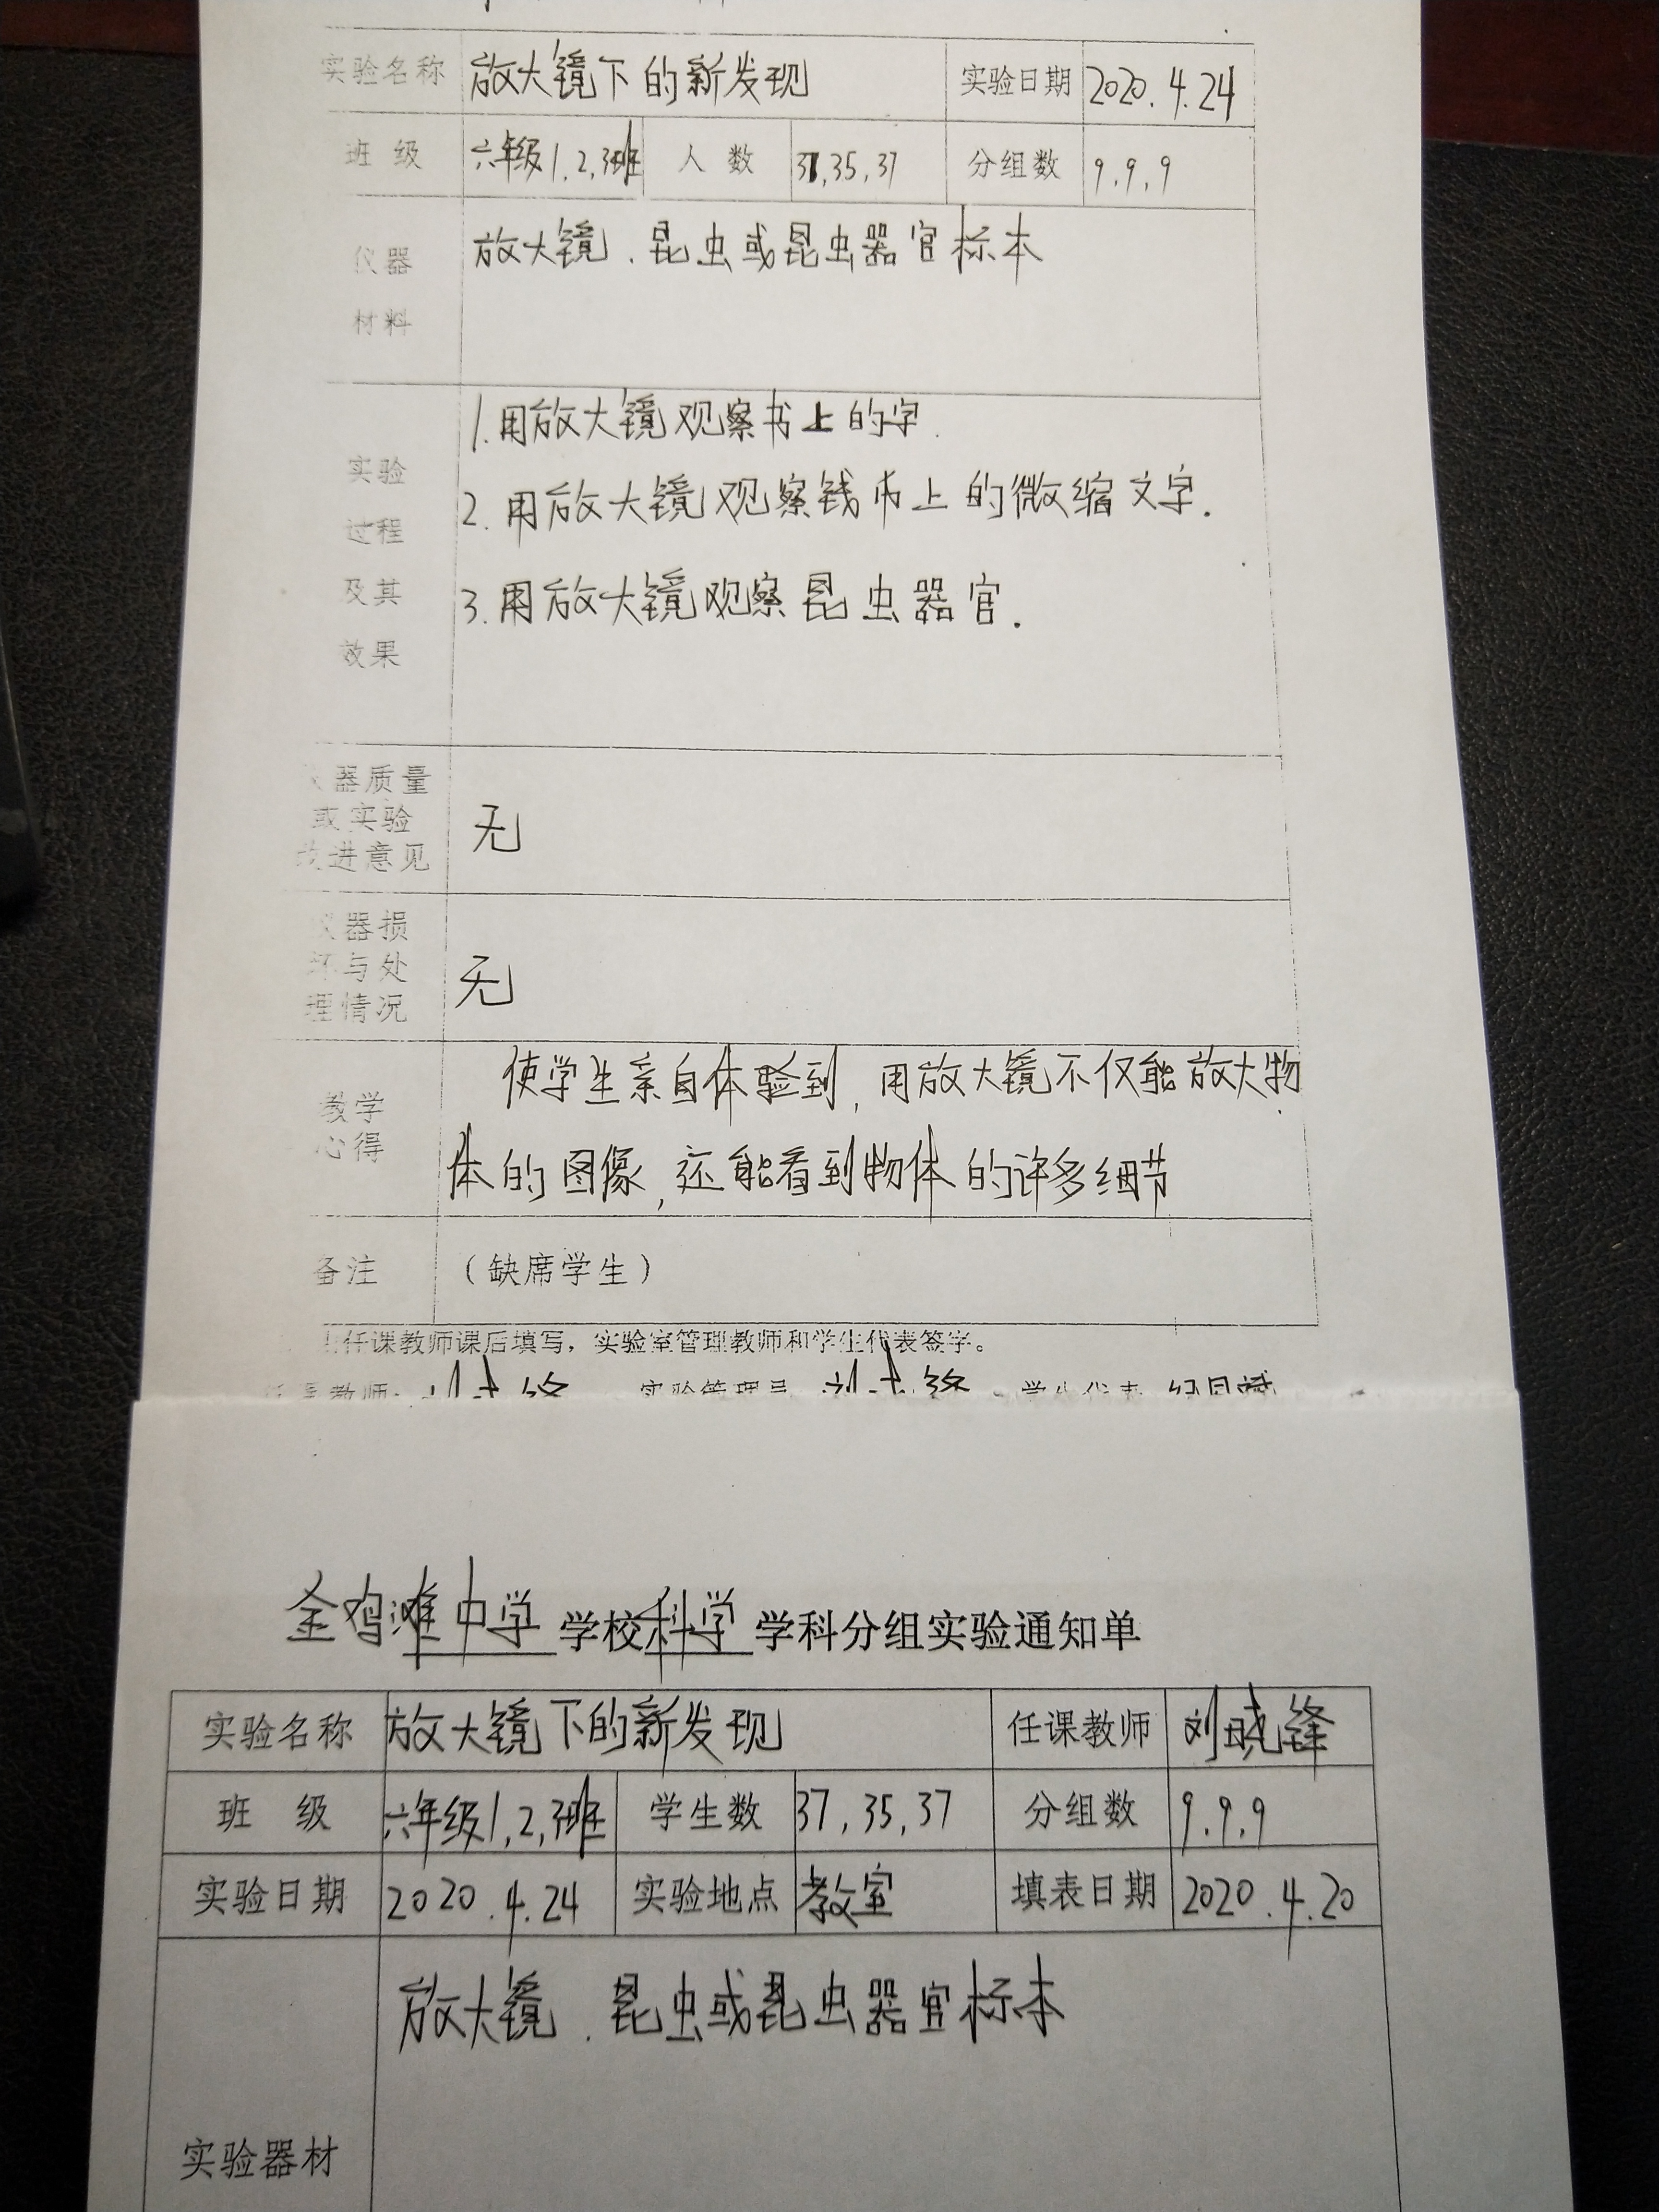 实验名称 放大镜下的新发现 实验日期 2020.4.24
班级 六年级1.2,3班 人数 37,35,37 分组数 9.9.9
仪器 放大镜.昆虫或昆虫器官标本
材料
1.用放大镜观察书上的字.
实验
2.用放大镜观察钱币上的微缩文字.
过程
及其 3.用放大镜观察昆虫器官.
效果
器质量
或实验 无
改进意见
器损
坏与处 无
理情况
使学生亲自体验到,用放大镜不仅能放大物
教学
心得 体的图像,还能看到物体的许多细节
备注 (缺席学生)
任课教师课后填写,实验室管理教师和学生代表签字。
金鸡滩中学学校科学学科分组实验通知单
实验名称 放大镜下的新发现 任课教师 刘晓锋
班级 六年级1,2,3班 学生数 37,35,37 分组数 9.9.9
实验日期 2020.4.24 实验地点 教室 填表日期 2020.4.20
放大镜.昆虫或昆虫器官标本
实验器材